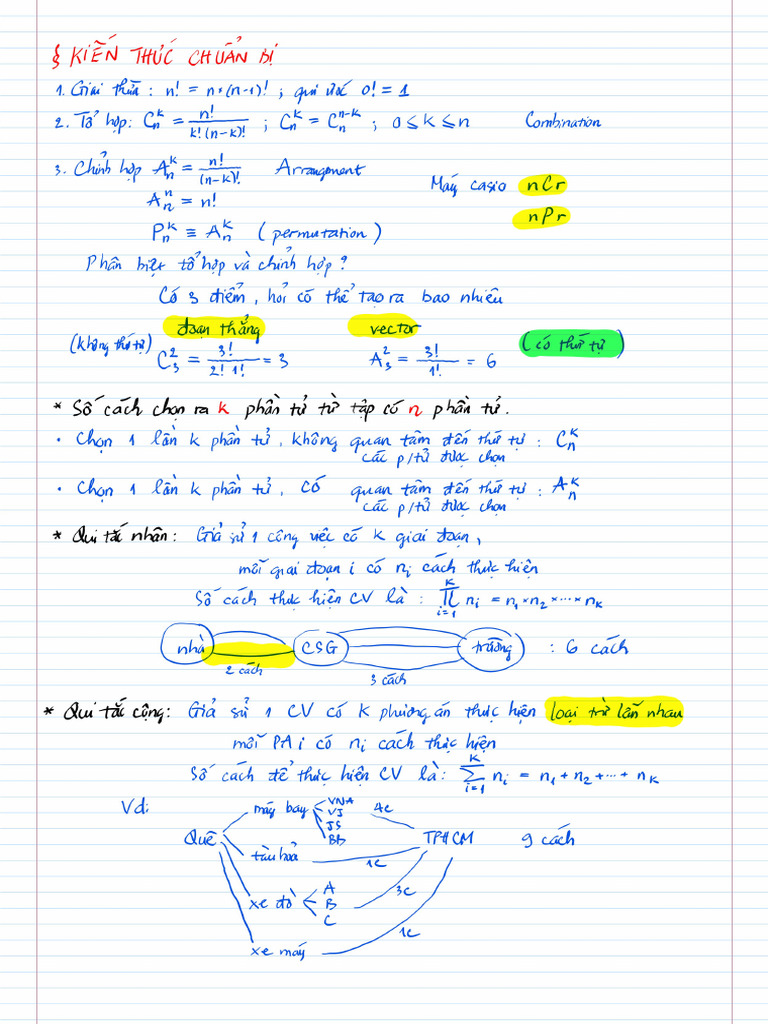 § KIẾN THỨC CHUẨN BỊ
1. Giai thừa : n! = n*(n-1)! ; qui ước 0! = 1
2. Tổ hợp: C_n^k = n!/(k!(n-k)!) ; C_n^k = C_n^{n-k} ; 0 ≤ k ≤ n Combination
3. Chỉnh hợp A_n^k = n!/(n-k)! Arrangement
Máy casio nCr
A_n^n = n!
nPr
P_n^k ≡ A_n^k (permutation)
Phân biệt tổ hợp và chỉnh hợp ?
Có 3 điểm, hỏi có thể tạo ra bao nhiêu
đoạn thẳng vector
(không thứ tự) C_3^2 = 3!/(2! 1!) = 3 A_3^2 = 3!/1! = 6 (có thứ tự)
* Số cách chọn ra k phần tử từ tập có n phần tử.
• Chọn 1 lần k phần tử, không quan tâm đến thứ tự : C_n^k
các p/tử được chọn
• Chọn 1 lần k phần tử, có quan tâm đến thứ tự : A_n^k
các p/tử được chọn
* Qui tắc nhân: Giả sử 1 công việc có k giai đoạn,
mỗi giai đoạn i có n_i cách thực hiện
Số cách thực hiện CV là : ∏_{i=1}^{k} n_i = n_1 × n_2 × ... × n_k
nhà CSG trường : 6 cách
2 cách 3 cách
* Qui tắc cộng: Giả sử 1 CV có k phương án thực hiện loại trừ lẫn nhau
mỗi PA i có n_i cách thực hiện
Số cách để thực hiện CV là: ∑_{i=1}^{k} n_i = n_1 + n_2 + ... + n_k
Vd: máy bay VNA 4c
VJ
JS
Quê BB TPHCM 9 cách
tàu hoả 1c
xe đò A 3c
B
C
1c
xe máy